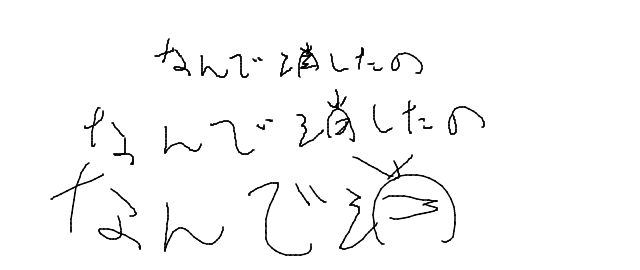 なんで消したの
なんで消したの
なんで消